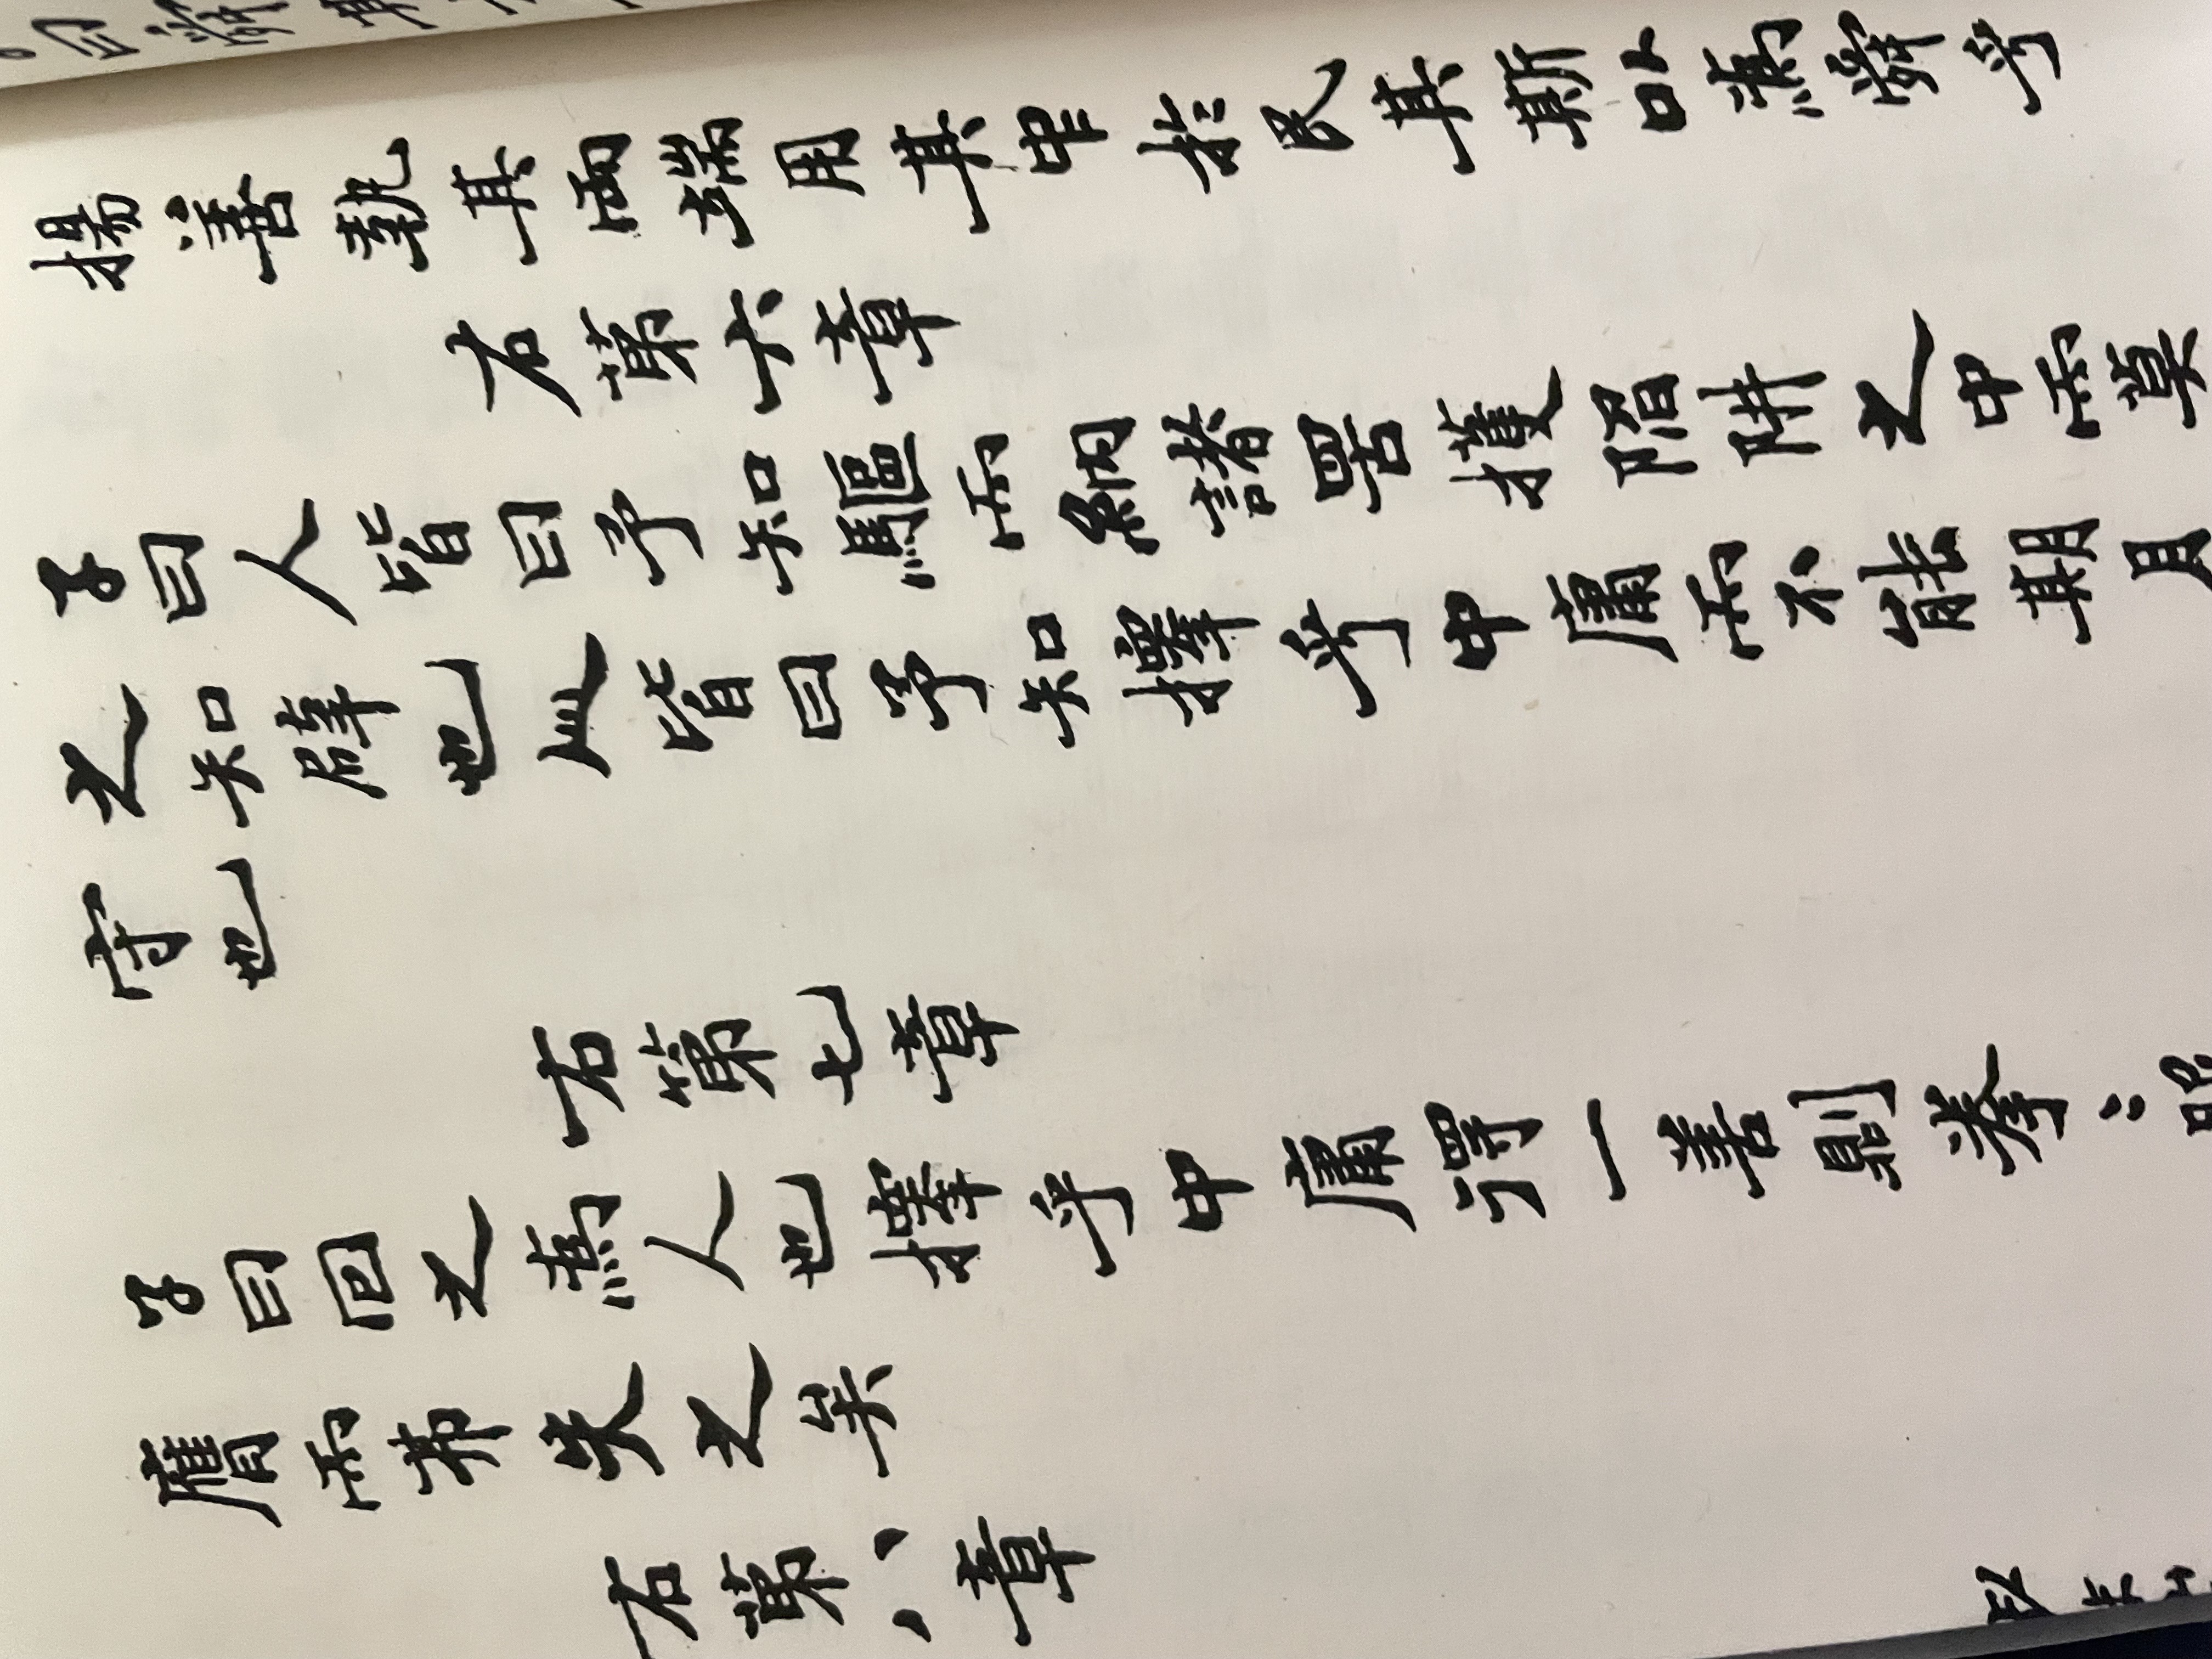 揚善執其兩端用其中於民其斯以為舜乎
右第六章
子曰人皆曰予知驅而納諸罟擭陷阱之中而莫
之知辟也人皆曰予知擇乎中庸而不能期月
守也
右第七章
子曰回之為人也擇乎中庸得一善則拳〻
膺而弗失之矣
右第八章